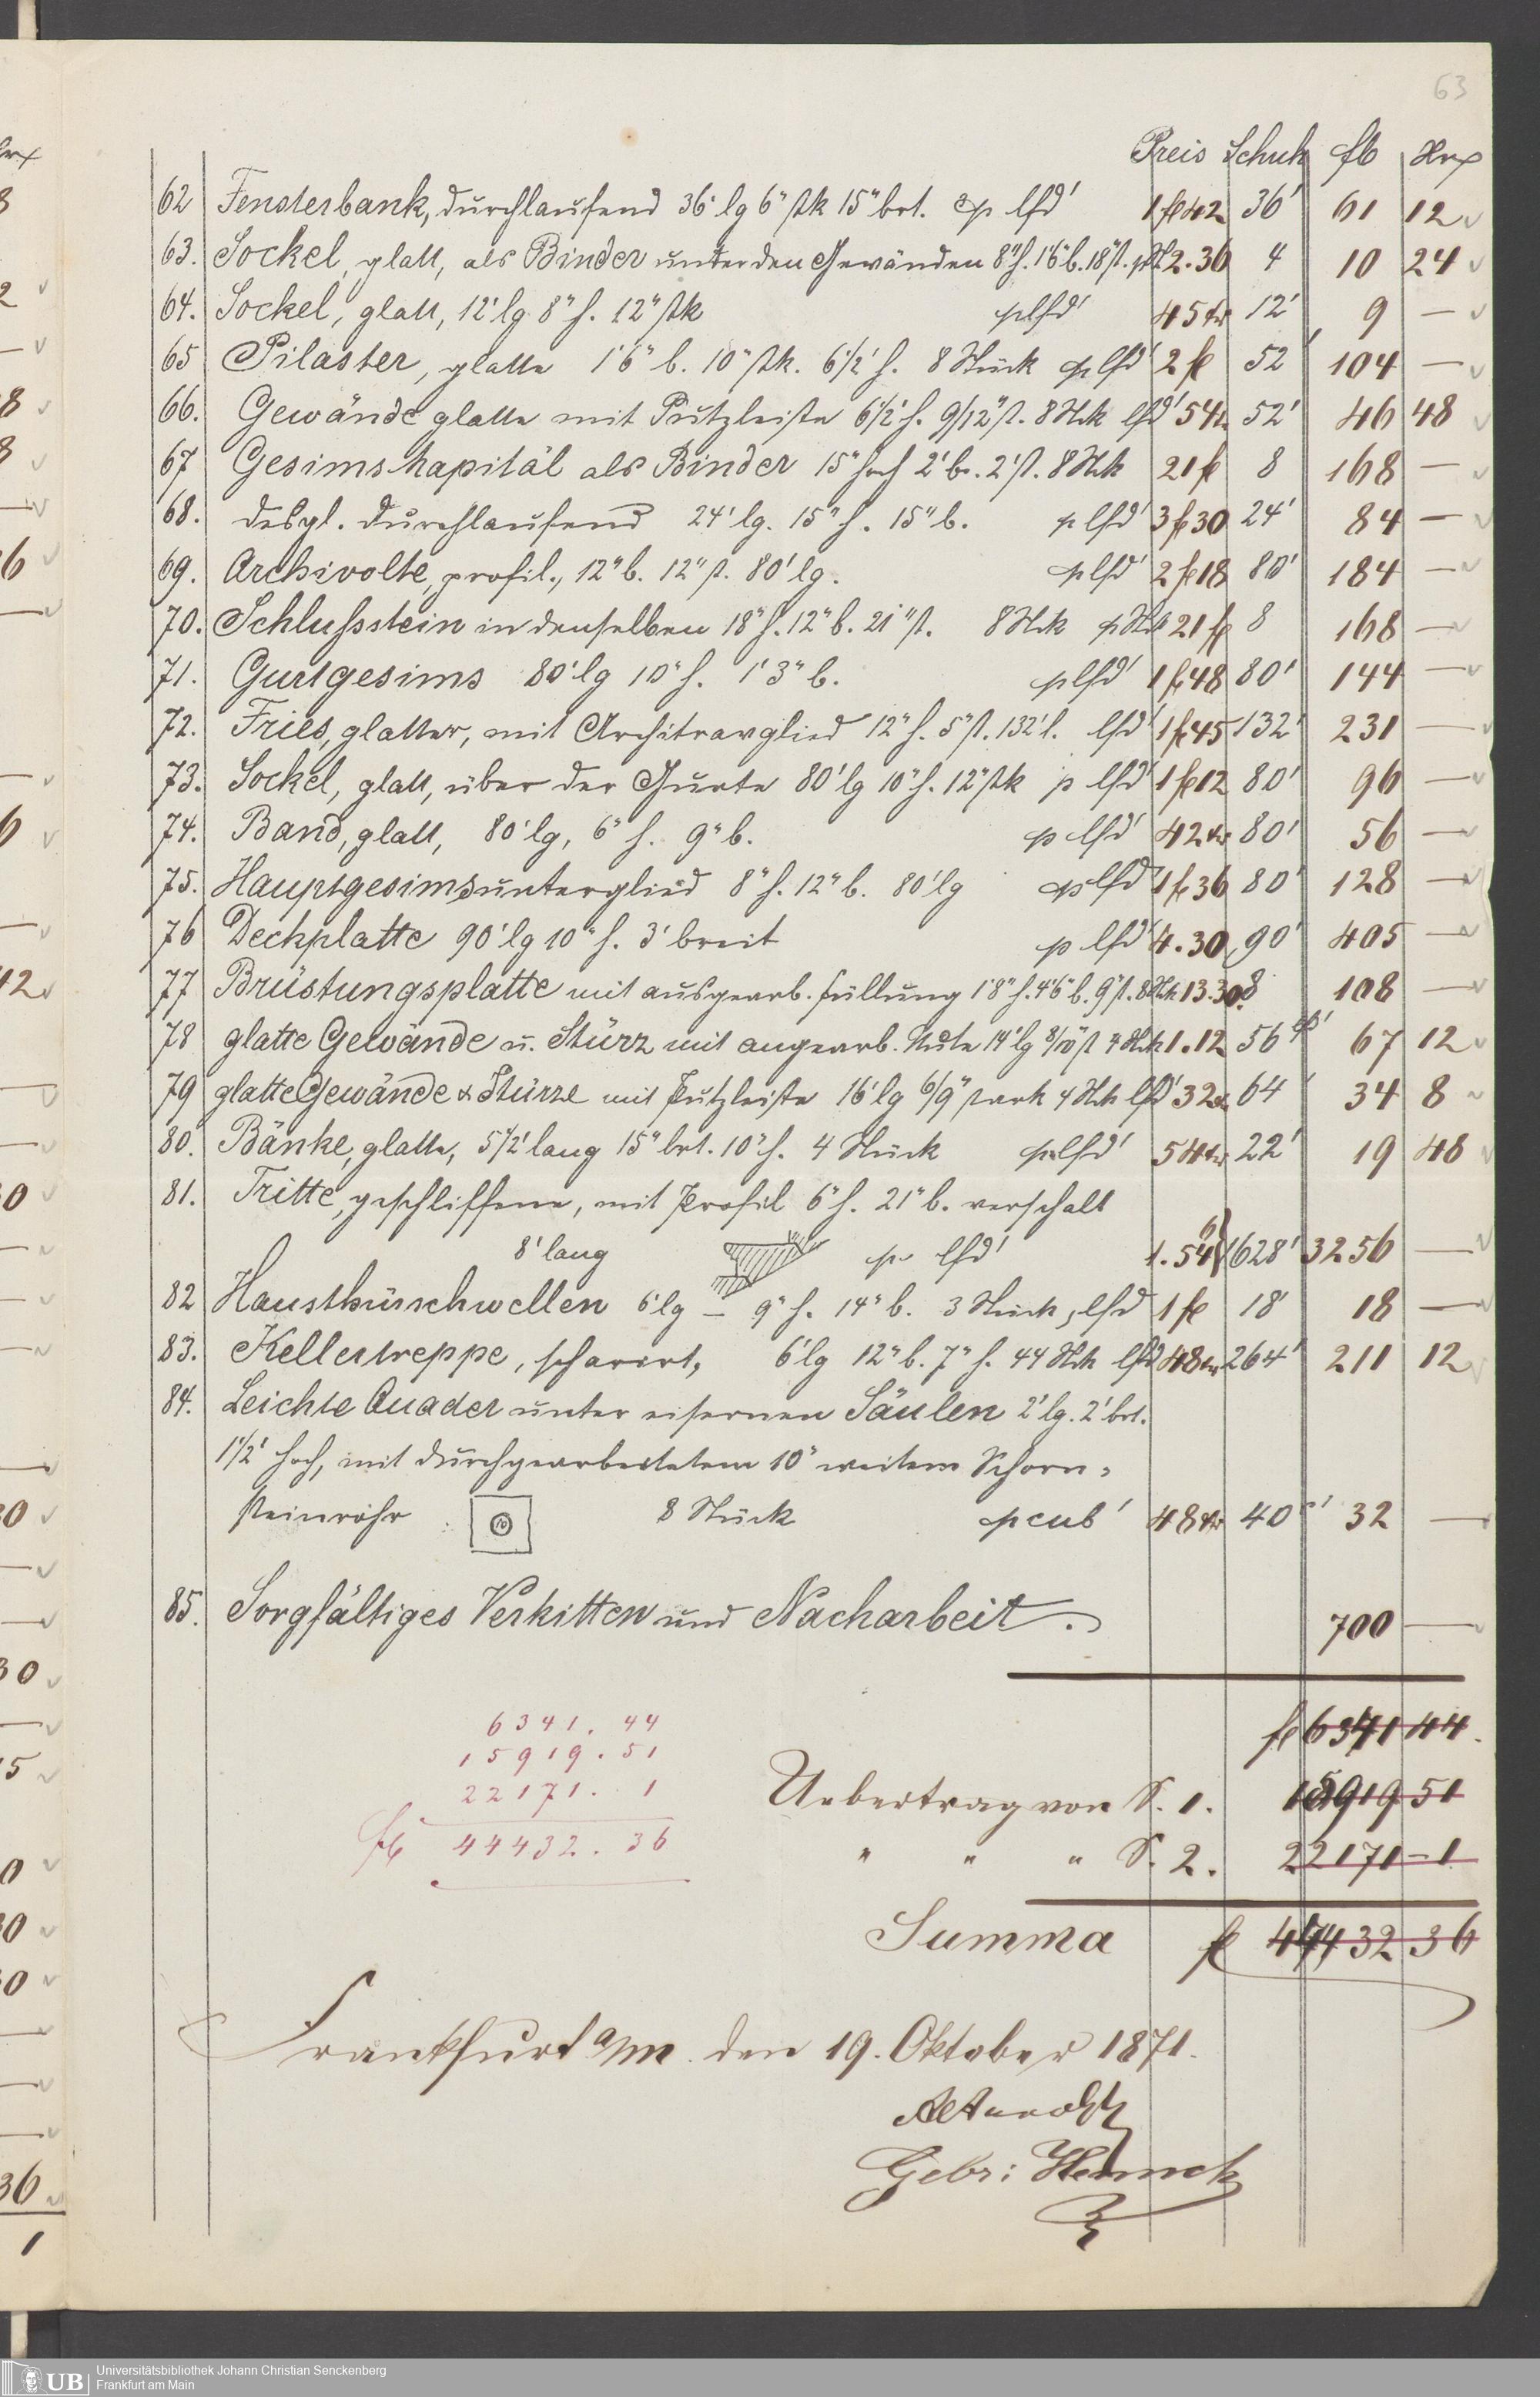 63
Preis Schuh fl Krx
62 Fensterbank, durchlaufend 36' lg 6" stk 15" brt. p lfd' 1 fl 42 36' 61 12
63. Sockel, glatt, als Binder unter den Gewänden 8" h. 1'6" b. 18" st. p Stk 2.36 4 10 24
64. Sockel, glatt, 12' lg 8" h. 12" stk p lfd' 45 kr 12' 9 —
65 Pilaster, glatte 1'6" b. 10" stk. 6 1/2' h. 8 Stück p lfd' 2 fl 52' 104 —
66. Gewände glatte mit Putzleiste 6 1/2' h. 9/12" st. 8 Stck lfd' 54 kr 52' 46 48
67 Gesimskapitäl als Binder 15" hoch 2' br. 2' st. 8 Stck 21 fl 8 168 —
68. desgl. durchlaufend 24' lg. 15" h. 15" b. p lfd' 3 fl 30 24' 84 —
69. Archivolte, profil., 12" b. 12" st. 80' lg. p lfd' 2 fl 18 80' 184 —
70. Schlußstein in denselben 18" h. 12" b. 21" st. 8 Stck p Stck 21 fl 8 168 —
71. Gurtgesims 80' lg 10" h. 1' 3" b. p lfd' 1 fl 48 80' 144 —
72. Fries, glatter, mit Architravglied 12" h. 5" st. 132' l. lfd' 1 fl 45 132' 231 —
73. Sockel, glatt, über der Gurte 80' lg 10" h. 12" stk p lfd' 1 fl 12 80' 96 —
74. Band, glatt, 80' lg, 6" h. 9" b. p lfd' 42 kr 80' 56 —
75. Hauptgesimsunterglied 8" h. 12" b. 80' lg p lfd' 1 fl 36 80' 128 —
76 Deckplatte 90' lg 10" h. 3' breit p lfd' 4.30 90' 405 —
77 Brüstungsplatte mit ausgearb. Füllung 1'8" h. 4'6" b. 9" st. 8 Stck 13.30 8 108 —
78 glatte Gewände u. Stürz mit angearb. Nute 14' lg 8/10" st 4 Stck 1.12 56' 67 12
79 glatte Gewände & Stürze mit Putzleiste 16' lg 6/9" stark 4 Stck lfd' 32 kr 64' 34 8
80. Bänke, glatte, 5 1/2' lang 15" brt. 10" h. 4 Stück p lfd' 54 kr 22' 19 48
81. Tritte, geschliffene, mit Profil 6" h. 21" b. verschalt
8' lang p lfd' 1.54 1628' 3256 —
82 Hausthürschwellen 6' lg — 9" h. 14" b. 3 Stück, lfd 1 fl 18' 18 —
83. Kellertreppe, scharirt, 6' lg 12" b. 7" h. 44 Stck lfd 48 kr 264' 211 12
84. Leichte Quader unter eisernen Säulen 2' lg. 2' brt.
1 1/2' hoch, mit durchgearbeitetem 10" weitem Schorn-
steinrohr 8 Stück p cub' 48 kr 40 c' 32 —
85. Sorgfältiges Verkitten und Nacharbeit. 700 —
fl 6341 44.
6341. 44
15919. 51
22171. 1
fl 44432. 36
Uebertrag von S. 1. 15919 51
" " " S. 2. 22171 – 1
Summa fl 44432 36
Frankfurt a/M. den 19. Oktober 1871.
Gebr:
UB Universitätsbibliothek Johann Christian Senckenberg
Frankfurt am Main